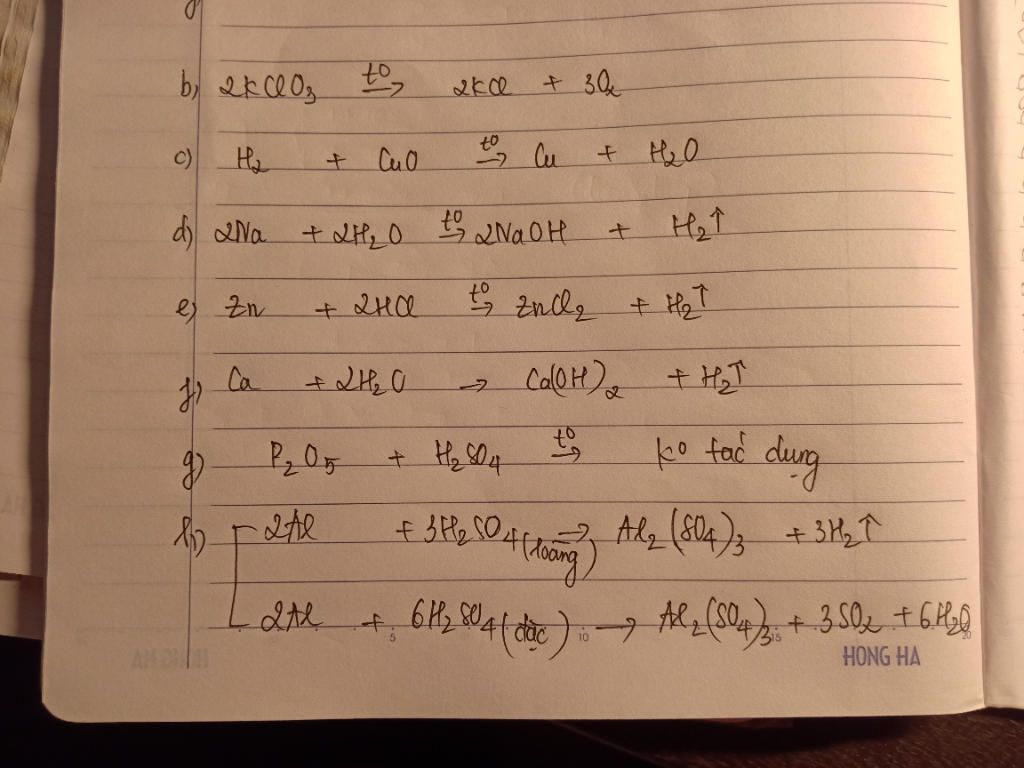 b) 2KClO₃ t⁰→ 2KCl + 3O₂
c) H₂ + CuO t⁰→ Cu + H₂O
d) 2Na + 2H₂O t⁰→ 2NaOH + H₂↑
e) Zn + 2HCl t⁰→ ZnCl₂ + H₂↑
f) Ca + 2H₂O → Ca(OH)₂ + H₂↑
g) P₂O₅ + H₂SO₄ t⁰→ k⁰ tác dụng
h) 2Al + 3H₂SO₄ (loãng) → Al₂(SO₄)₃ + 3H₂↑
2Al + 6H₂SO₄ (đặc) → Al₂(SO₄)₃ + 3SO₂ + 6H₂O
5 10 15 20
HONG HA